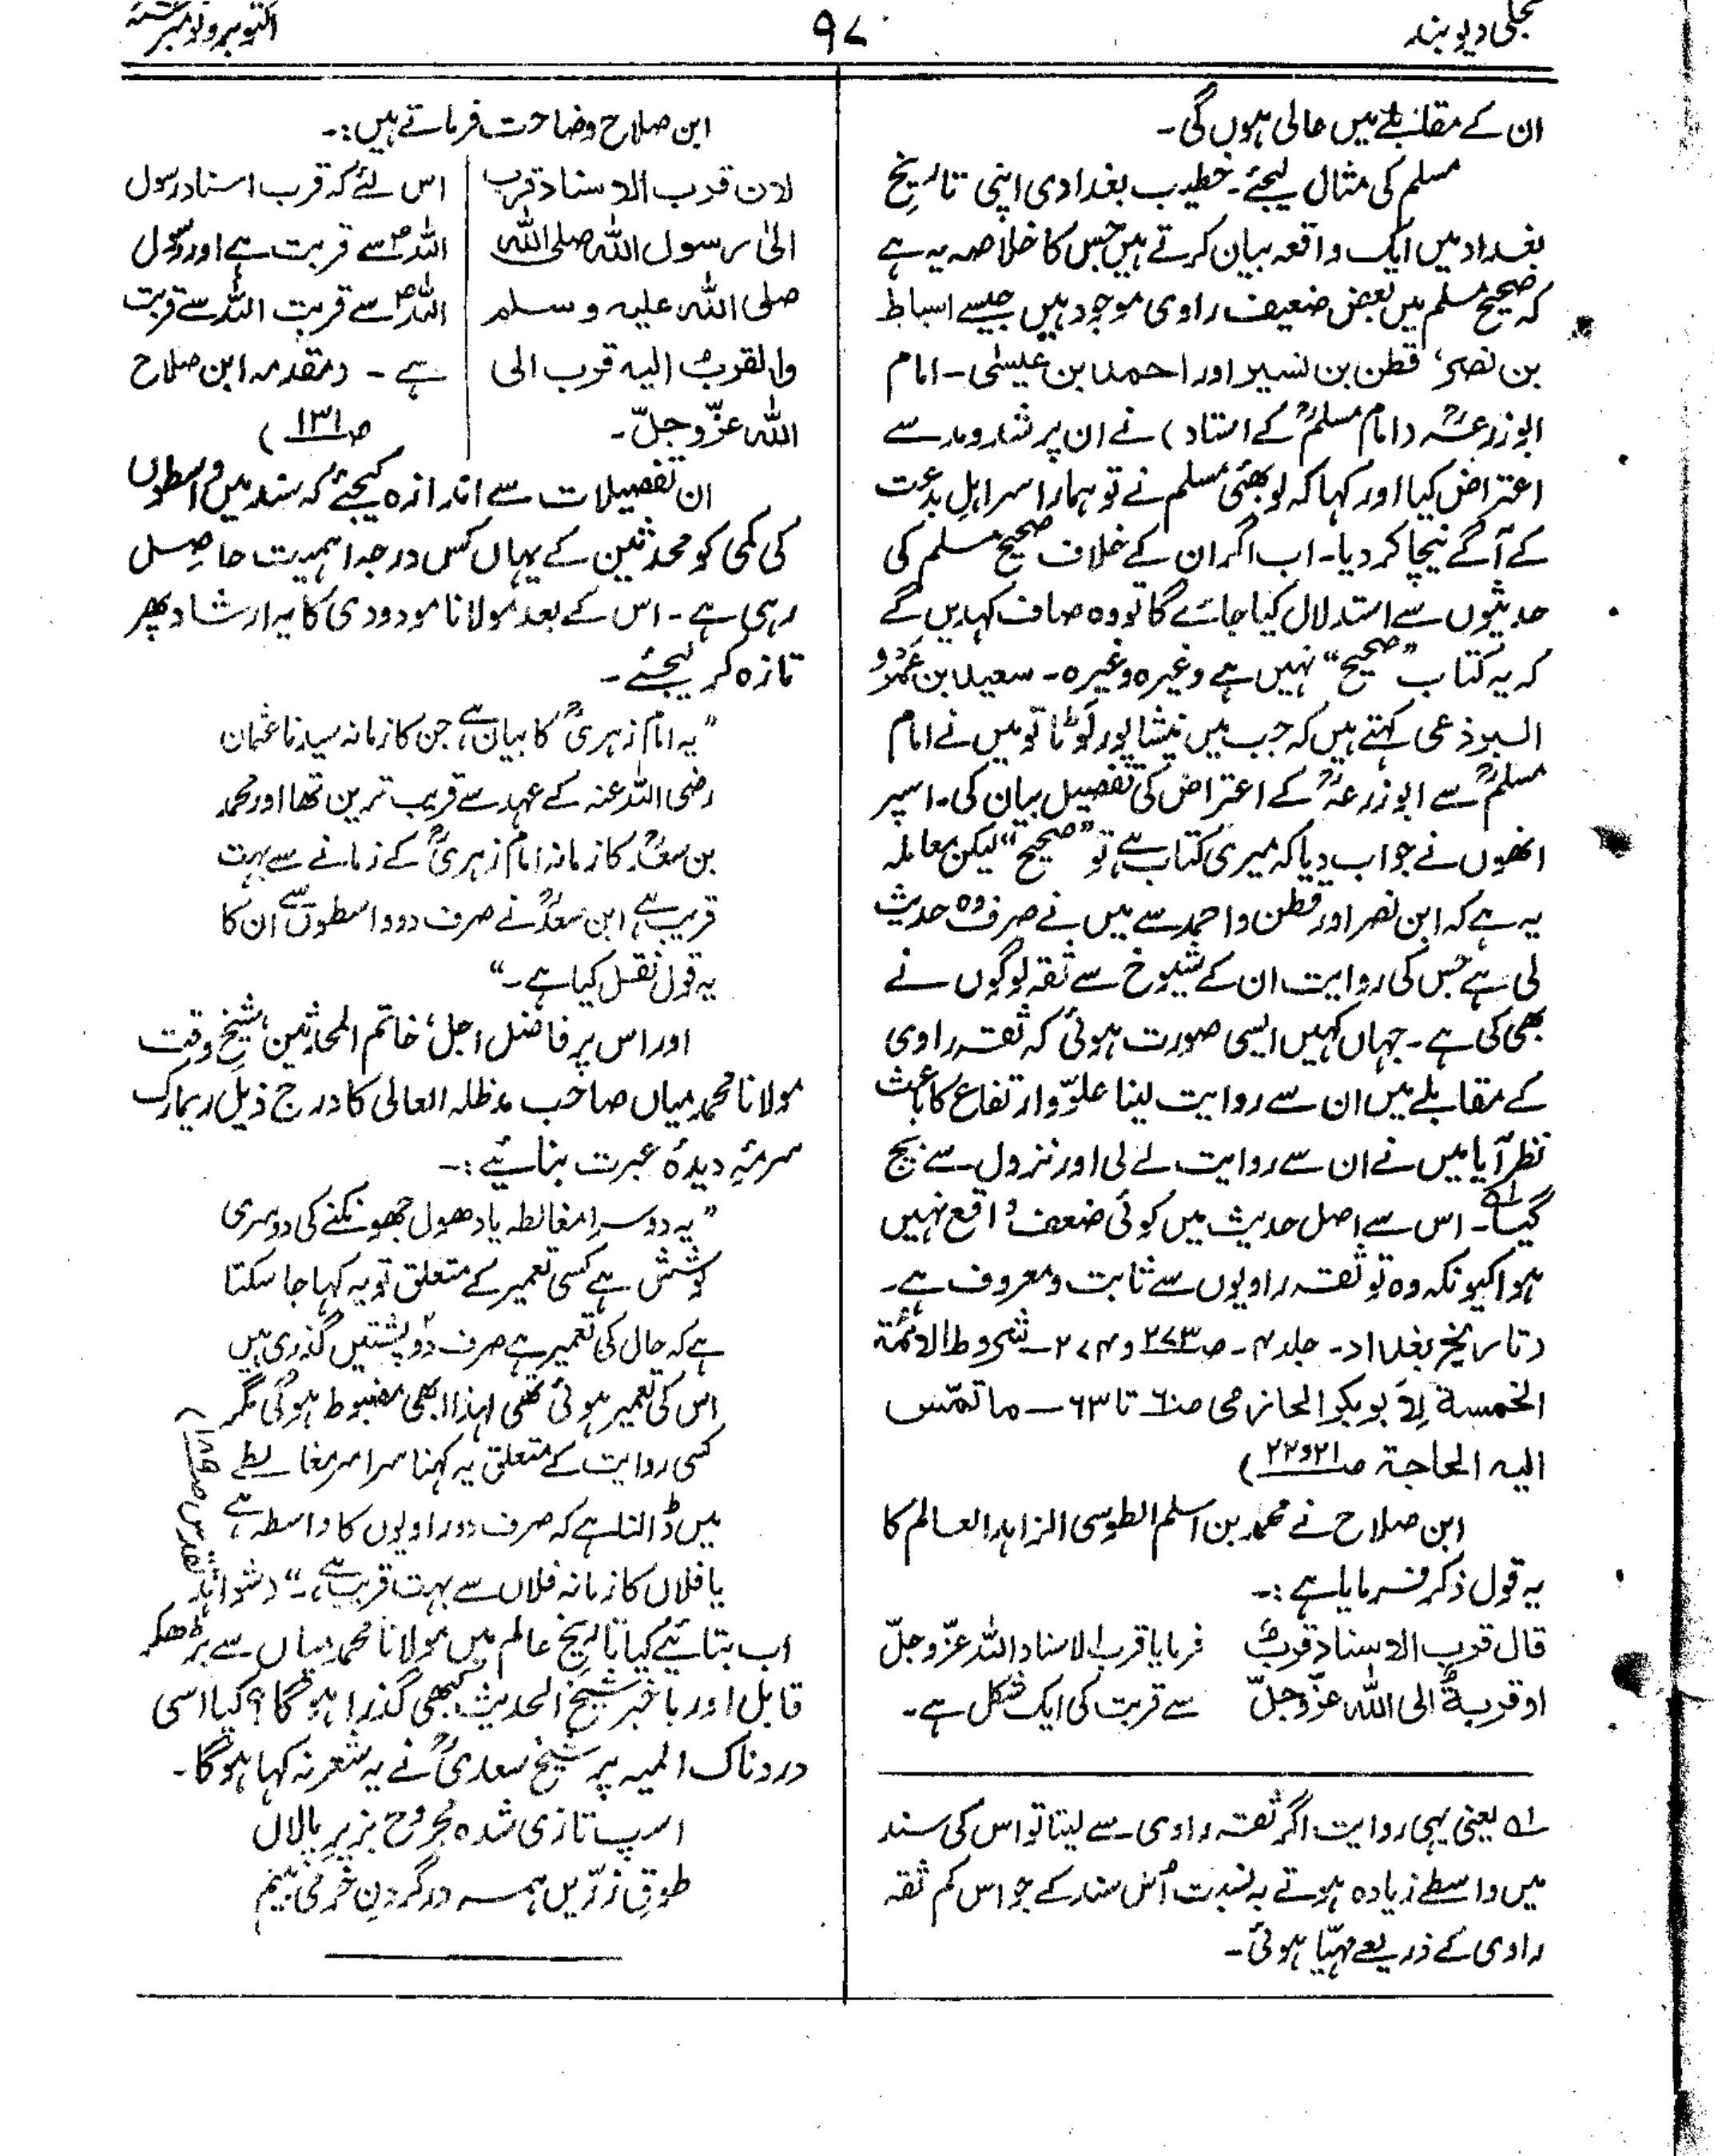 تجلی دیوبند
۹۷
اکتوبر و نومبر
ان کے مقابلے میں عالی ہوں گی۔
مسلم کی مثال لیجئے۔ خطیب بغدادی اپنی تاریخ
بغداد میں ایک واقعہ بیان کرتے ہیں جس کا خلاصہ یہ ہے
کہ صحیح مسلم میں بعض ضعیف راوی موجود ہیں جیسے اسباط
بن نصر، قطن بن نسیر اور احمد بن عیسیٰ۔ امام
ابوزرعہؒ (امام مسلمؒ کے استاد) نے ان پر شد و مد سے
اعتراض کیا اور کہا کہ لو بھئی مسلم نے تو ہمارا سر اہلِ بدعت
کے آگے نیچا کر دیا۔ اب اگر ان کے خلاف صحیح مسلم کی
حدیثوں سے استدلال کیا جائے گا تو وہ صاف کہدیں گے
کہ یہ کتاب "صحیح" نہیں ہے وغیرہ وغیرہ۔ سعید بن عمرو
البرذعی کہتے ہیں کہ جب میں نیشاپور لوٹا تو میں نے امام
مسلمؒ سے ابوزرعہؒ کے اعتراض کی تفصیل بیان کی۔ اسپر
انھوں نے جواب دیا کہ میری کتاب ہے تو "صحیح" لیکن معاملہ
یہ ہے کہ ابن نصر اور قطن و احمد سے میں نے صرف وہ حدیث
لی ہے جس کی روایت ان کے شیوخ سے ثقہ لوگوں نے
بھی کی ہے۔ جہاں کہیں ایسی صورت ہوئی کہ ثقہ راوی
کے مقابلے میں ان سے روایت لینا علوّ و ارتفاع کا باعث
نظر آیا میں نے ان سے روایت لے لی اور نزول سے بچ
گیا۔ لہ اس سے اصل حدیث میں کوئی ضعف واقع نہیں
ہوا کیونکہ وہ تو ثقہ راویوں سے ثابت و معروف ہے۔
(تاریخ بغداد۔ جلد ۴۔ ص ۲۷۳ و ۲۷۴۔ شروط الائمۃ
الخمسۃ لِاَبوبکر الحازمی ص ۶۰ تا ۶۳۔ ما تمس
الیہ الحاجۃ ص ۲۱ و ۲۲)
ابن صلاح نے محمد بن اسلم الطوسی الزاہد العالم کا
یہ قول ذکر فرمایا ہے :۔
قال قرب الاسناد قربٌ فرمایا قرب الاسناد اللہ عزّ وجلّ
او قربۃٌ الی اللہ عزّ وجلّ سے قربت کی ایک شکل ہے۔
لہ یعنی یہی روایت اگر ثقہ راوی سے لیتا تو اس کی سند
میں واسطے زیادہ ہوتے بہ نسبت اُس سند کے جو اس کم ثقہ
راوی کے ذریعے مہیّا ہوئی۔
ابن صلاح وضاحت فرماتے ہیں :۔
لان قرب الاسناد قرب اس لئے کہ قرب اسناد رسول
الیٰ رسول اللہ صلی اللہ اللہؐ سے قربت ہے اور رسول
صلی اللہ علیہ وسلم اللہؐ سے قربت اللہ سے قربت
والقربُ الیہ قرب الی ہے۔ (مقدمہ ابن صلاح
اللہ عزّ وجلّ۔ ص ۱۳۱)
ان تفصیلات سے اندازہ کیجئے کہ سند میں واسطوں
کی کمی کو محدثین کے یہاں کس درجہ اہمیت حاصل
رہی ہے۔ اس کے بعد مولانا مودودی کا یہ ارشاد پھر
تازہ کر لیجئے۔
"یہ امام زہریؒ کا بیان ہے، جن کا زمانہ سیدنا عثمان
رضی اللہ عنہ کے عہد سے قریب ترین تھا اور محمد
بن سعدؒ کا زمانہ امام زہریؒ کے زمانے سے بہت
قریب ہے، ابن سعدؒ نے صرف دو واسطوں سے ان کا
یہ قول نقل کیا ہے۔"
اور اس پر فاضل اجل، خاتم المحدثین، شیخِ وقت
مولانا محمد میاں صاحب مدظلہ العالی کا درج ذیل ریمارک
سرمۂ دیدۂ عبرت بنائیے :۔
"یہ دوسرا مغالطہ یا دھول جھونکنے کی دوسری
کوشش ہے کسی تعمیر کے متعلق تو یہ کہا جا سکتا
ہے کہ حال کی تعمیر ہے صرف دو ۲ پشتیں گذری ہیں
اس کی تعمیر ہوئی تھی لہذا ابھی مضبوط ہوگی مگر
کسی روایت کے متعلق یہ کہنا سراسر مغالطے
میں ڈالنا ہے کہ صرف دو راویوں کا واسطہ ہے
یا فلاں کا زمانہ فلاں سے بہت قریب ہے۔" (شواہد
تقدس ص
اب بتائیے کیا تاریخ عالم میں مولانا محمد میاں سے بڑھکر
قابل اور باخبر شیخ الحدیث کبھی گذرا ہوگا؟ کیا اسی
دردناک المیہ پر شیخ سعدیؒ نے یہ شعر نہ کہا ہوگا۔
اسپ تازی شدہ مجروح بزیرِ پالاں
طوقِ زرّیں ہمہ در گردنِ خر می بینم